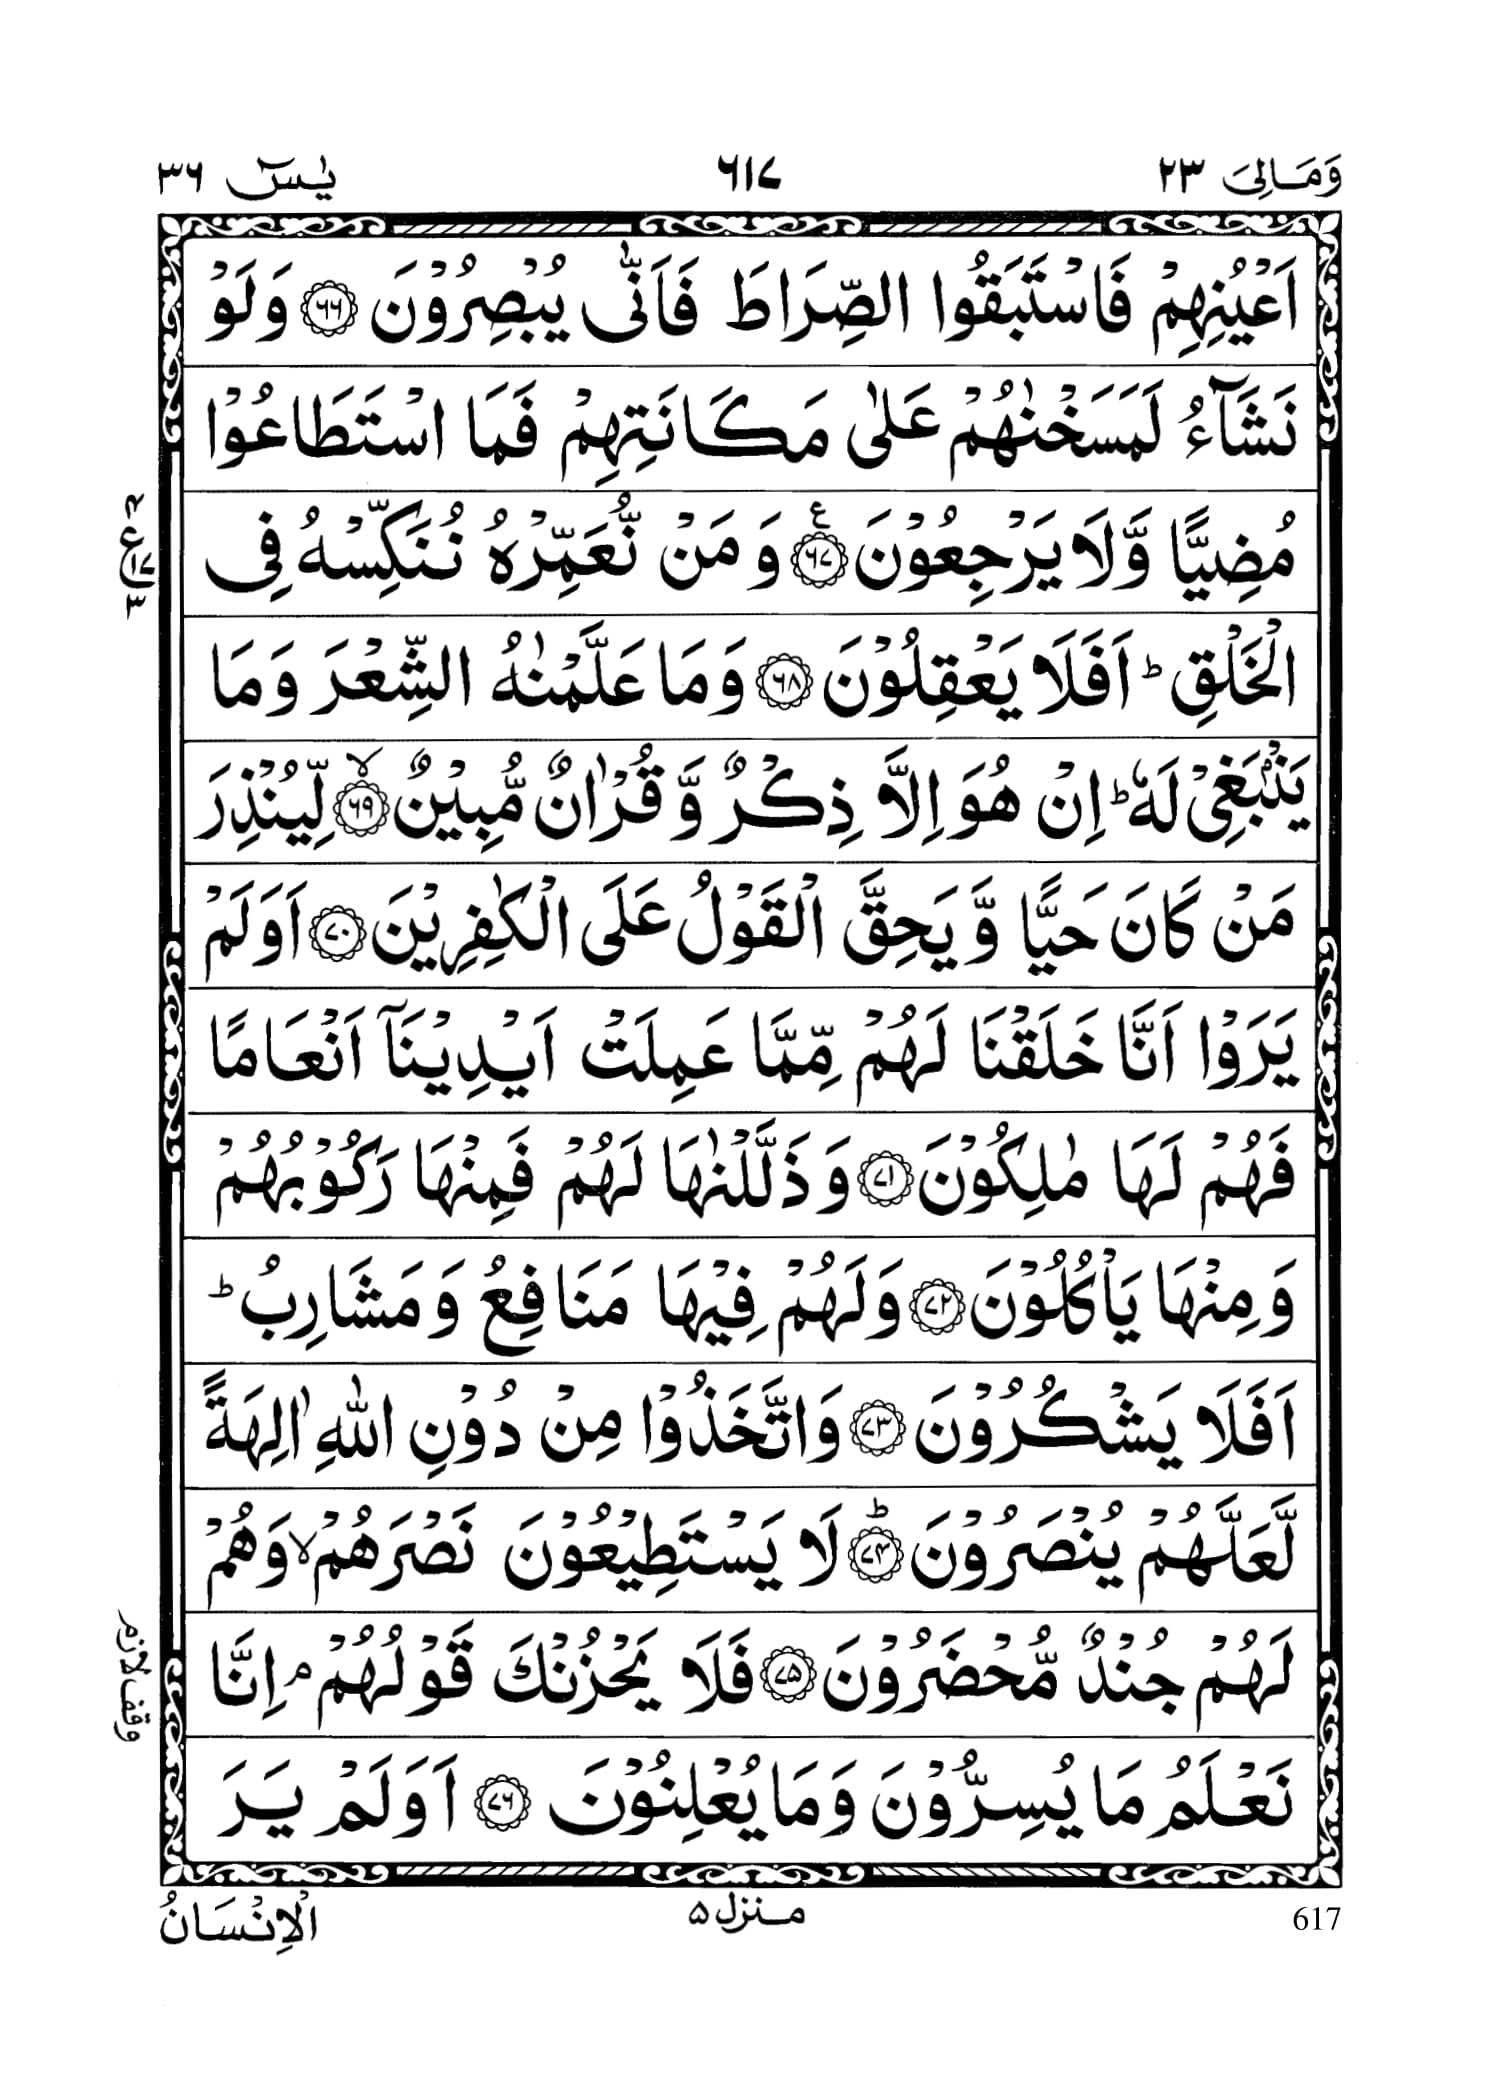 وَمَالِیَ ۲۳
۶۱۷
یٰسٓ ۳۶
اَعْیُنِهِمْ فَاسْتَبَقُوا الصِّرَاطَ فَاَنّٰی یُبْصِرُوْنَ ﴿۶۶﴾ وَلَوْ
نَشَآءُ لَمَسَخْنٰهُمْ عَلٰی مَكَانَتِهِمْ فَمَا اسْتَطَاعُوْا
مُضِیًّا وَّلَا یَرْجِعُوْنَ ﴿۶۷﴾ ع وَمَنْ نُّعَمِّرْهُ نُنَكِّسْهُ فِی
ع ۱۷ ۳
الْخَلْقِ ؕ اَفَلَا یَعْقِلُوْنَ ﴿۶۸﴾ وَمَا عَلَّمْنٰهُ الشِّعْرَ وَمَا
یَنْۢبَغِیْ لَهٗ ؕ اِنْ هُوَ اِلَّا ذِكْرٌ وَّ قُرْاٰنٌ مُّبِیْنٌ ﴿۶۹﴾ ۙ لِّیُنْذِرَ
مَنْ كَانَ حَیًّا وَّ یَحِقَّ الْقَوْلُ عَلَی الْكٰفِرِیْنَ ﴿۷۰﴾ اَوَلَمْ
یَرَوْا اَنَّا خَلَقْنَا لَهُمْ مِّمَّا عَمِلَتْ اَیْدِیْنَاۤ اَنْعَامًا
فَهُمْ لَهَا مٰلِكُوْنَ ﴿۷۱﴾ وَذَلَّلْنٰهَا لَهُمْ فَمِنْهَا رَكُوْبُهُمْ
وَمِنْهَا یَاْكُلُوْنَ ﴿۷۲﴾ وَلَهُمْ فِیْهَا مَنَافِعُ وَمَشَارِبُ ؕ
اَفَلَا یَشْكُرُوْنَ ﴿۷۳﴾ وَاتَّخَذُوْا مِنْ دُوْنِ اللّٰهِ اٰلِهَةً
لَّعَلَّهُمْ یُنْصَرُوْنَ ﴿۷۴﴾ ؕ لَا یَسْتَطِیْعُوْنَ نَصْرَهُمْ ۙ وَهُمْ
لَهُمْ جُنْدٌ مُّحْضَرُوْنَ ﴿۷۵﴾ فَلَا یَحْزُنْكَ قَوْلُهُمْ ۘ اِنَّا
وقف لازم
نَعْلَمُ مَا یُسِرُّوْنَ وَمَا یُعْلِنُوْنَ ﴿۷۶﴾ اَوَلَمْ یَرَ
617
منزل ۵
الْاِنْسَانُ